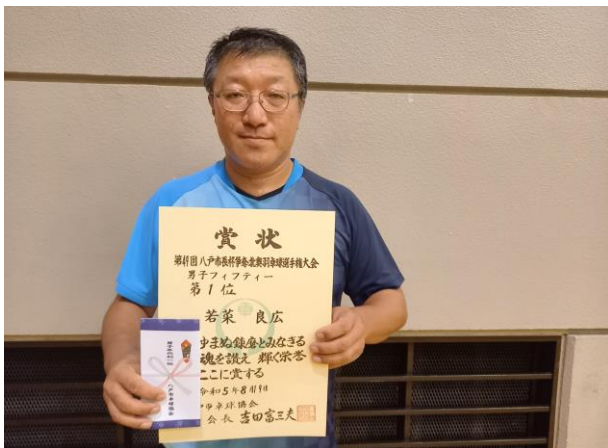 賞状
第49回八戸市長杯争奪北奥羽卓球選手権大会
男子フィフティー
第1位
若菜 良広
ゆまぬ錬磨とみなぎる
魂を讃え 輝く栄誉
ここに賞する
令和5年8月19日
市卓球協会
会長 吉田富三夫
八戸卓球協会